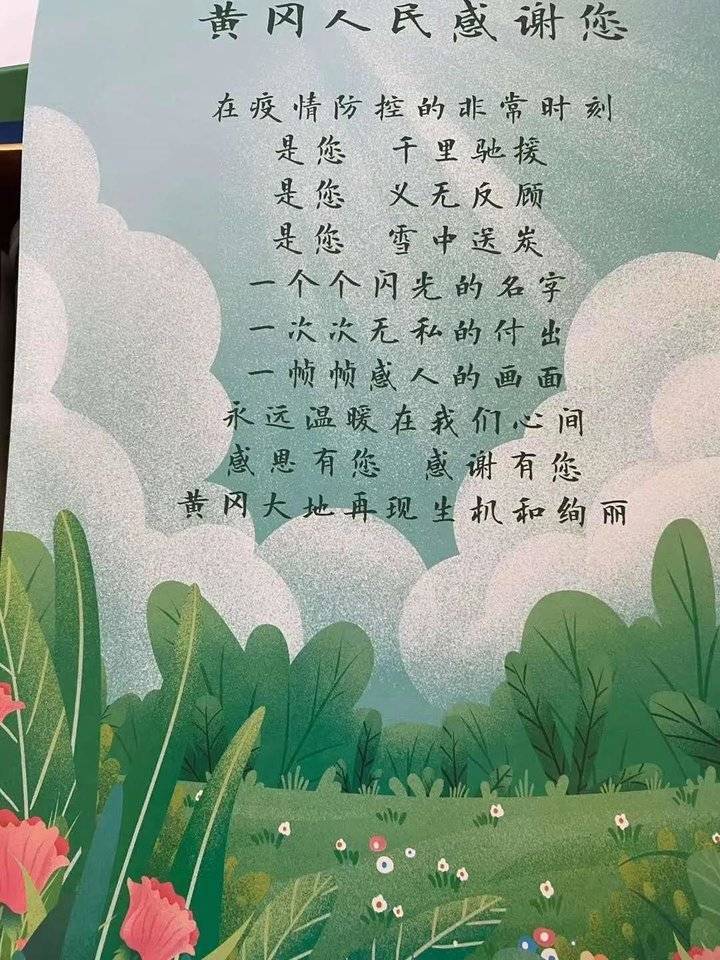 黄冈人民感谢您
在疫情防控的非常时刻
是您 千里驰援
是您 义无反顾
是您 雪中送炭
一个个闪光的名字
一次次无私的付出
一帧帧感人的画面
永远温暖在我们心间
感恩有您 感谢有您
黄冈大地再现生机和绚丽